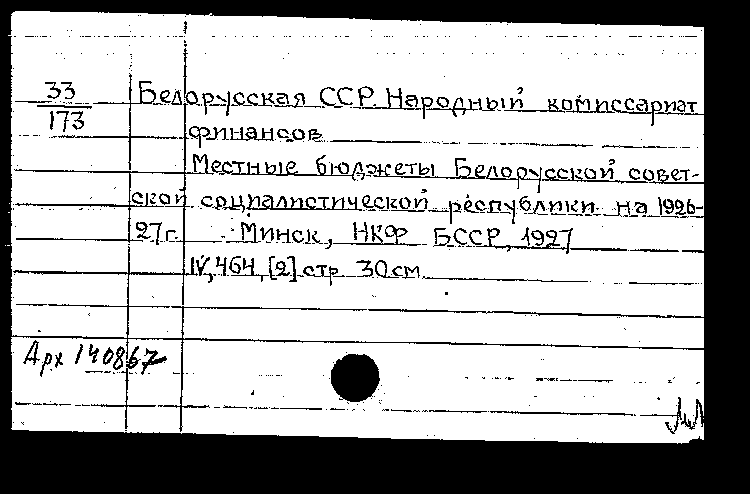 33
173
Белорусская ССР. Народный комиссариат
финансов
Местные бюджеты Белорусской совет-
ской социалистической республики на 1926-
27г. Минск, НКФ БССР, 1927
IV, 464, [2] стр. 30см.
Арх 140867